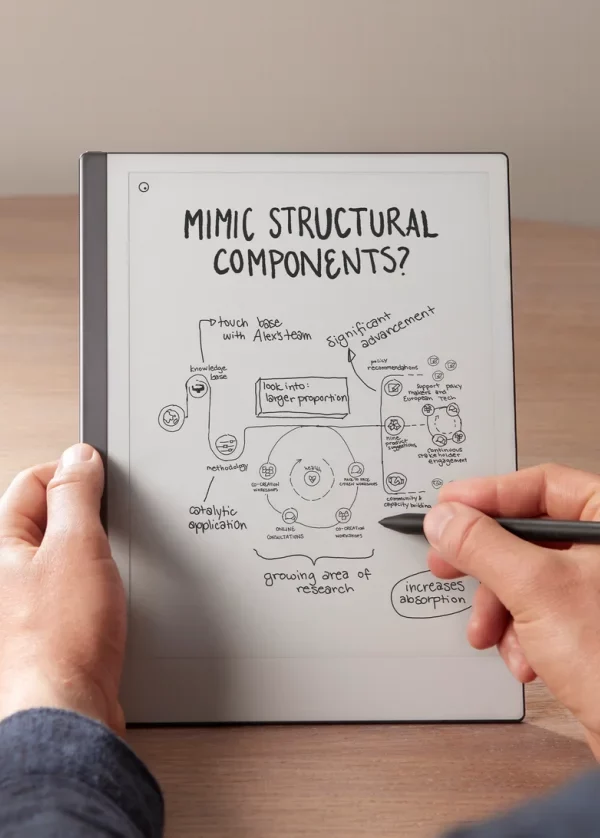 MIMIC STRUCTURAL
COMPONENTS?
touch base
with Alex's team
significant
advancement
knowledge
base
look into:
larger proportion
policy
recommendations
support policy
makers and
European Tech
nine product
suggestions
continuous
stakeholder
engagement
methodology
CO-CREATION
WORKSHOPS
FACE TO FACE
CITIZEN WORKSHOPS
community &
capacity building
catalytic
application
ONLINE
CONSULTATIONS
CO-CREATION
WORKSHOPS
growing area of
research
increases
absorption